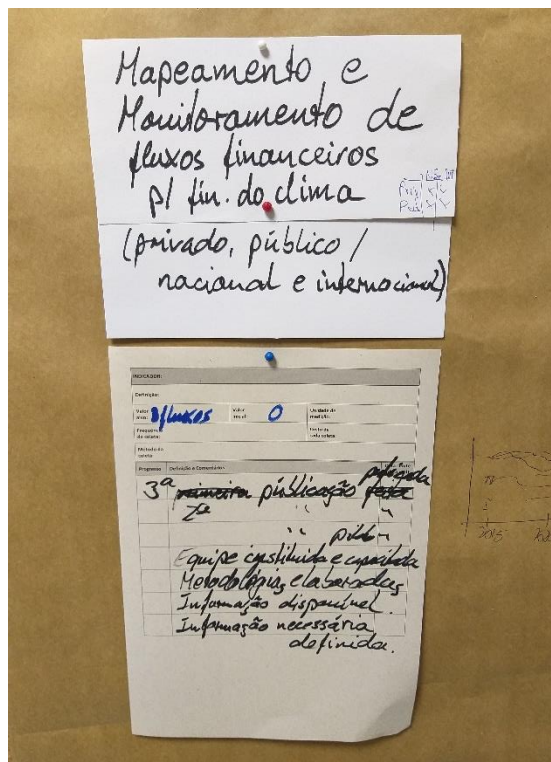 Mapeamento e
Monitoramento de
fluxos financeiros
p/ fin. do clima
(privado, público /
nacional e internacional)
INDICADOR:
Definição:
Valor
fluxos
Valor
0
Unidade de
medição:
Frequência
de coleta:
Método de
coleta:
Progresso Definição e Comentários
3ª primeira publicação
2ª " "
" piloto
Equipe constituida e capacitada
Metodologias elaboradas
Informação disponível.
Informação necessária
definida.
2013